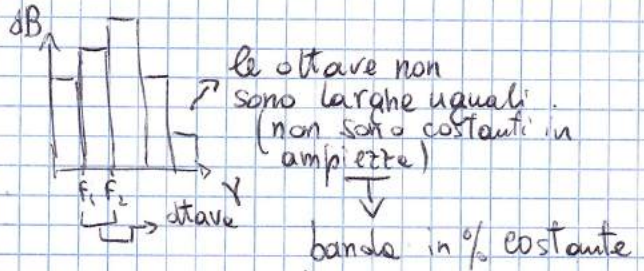 dB
le ottave non
sono larghe uguali.
(non sono costanti in
ampiezza)
f₁ f₂ γ
ottave
banda in % costante